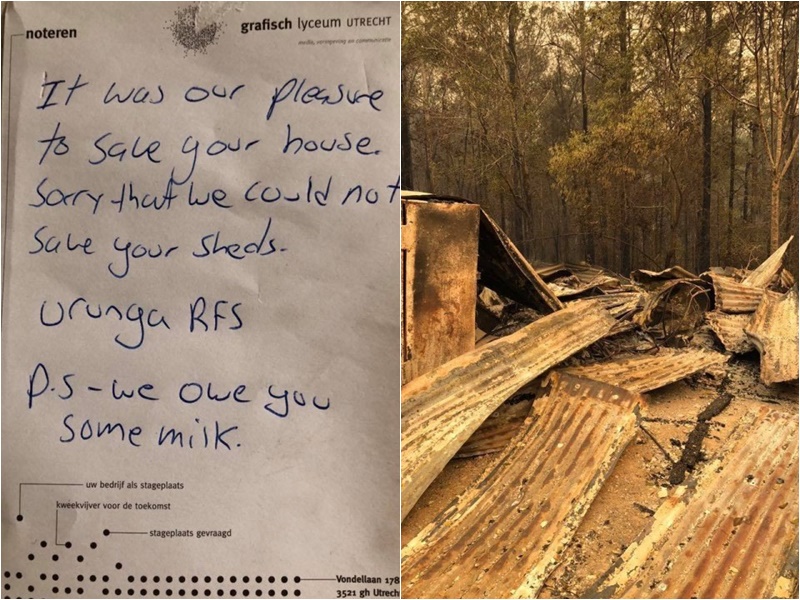 noteren
grafisch lyceum UTRECHT
media, vormgeving en communicatie
It was our pleasure
to save your house.
Sorry that we could not
save your sheds.
Urunga RFS
P.S - we owe you
some milk.
uw bedrijf als stageplaats
kweekvijver voor de toekomst
stageplaats gevraagd
Vondellaan 178
3521 gh Utrech